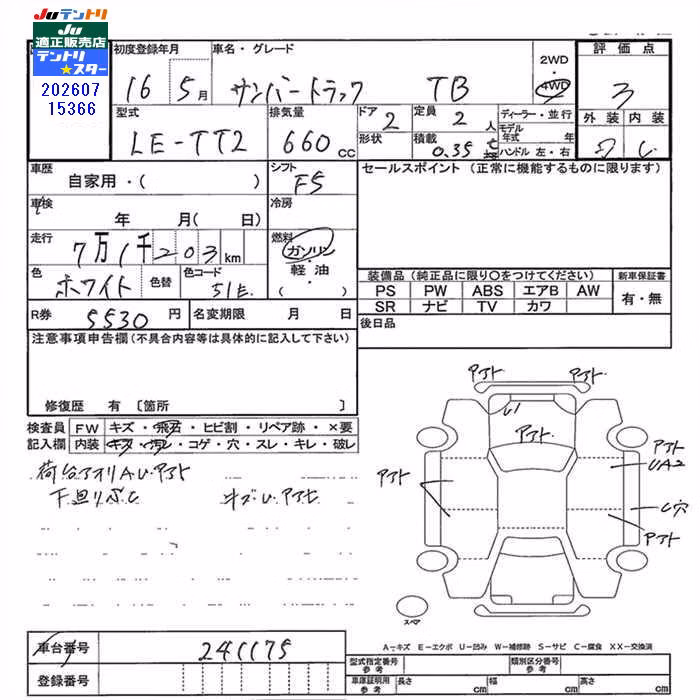 JUテントリ
JU
適正販売店
テントリ
★スター
202607
15366
初度登録年月 16 5月
車名・グレード サンバートラック TB
2WD・4WD
評価点 3
外装 内装
型式 LE-TT2
排気量 660cc
ドア 2
形状
定員 2人
積載 0.35
ディーラー・並行
モデル年式 年
ハンドル 左・右
車歴 自家用・( )
シフト F5
セールスポイント (正常に機能するものに限ります)
車検 年 月( 日)
冷房
走行 7万1千203km
燃料 ガソリン・軽油・( )
色 ホワイト 色替 色コード 51E
装備品(純正品に限り○をつけてください) 新車保証書
PS PW ABS エアB AW 有・無
SR ナビ TV カワ
R券 5530円
名変期限 月 日
後日品
注意事項申告欄(不具合内容等は具体的に記入して下さい)
修復歴 有 〔箇所 〕
検査員 FW キズ・飛石・ヒビ割・リペア跡・×要
記入欄 内装 キズ・汚レ・コゲ・穴・スレ・キレ・破レ
荷台アオリAUアト
下廻りさび キズU
アト アト
U1
アト
アト
アト
UA2
C穴
アト
スペア
車台番号 241175
登録番号
A―キズ E―エクボ U―凹み W―補修跡 S―サビ C―腐食 XX―交換済
型式指定番号 参考
類別区分番号
車庫証明用 参考 長さ cm 幅 cm 高さ cm